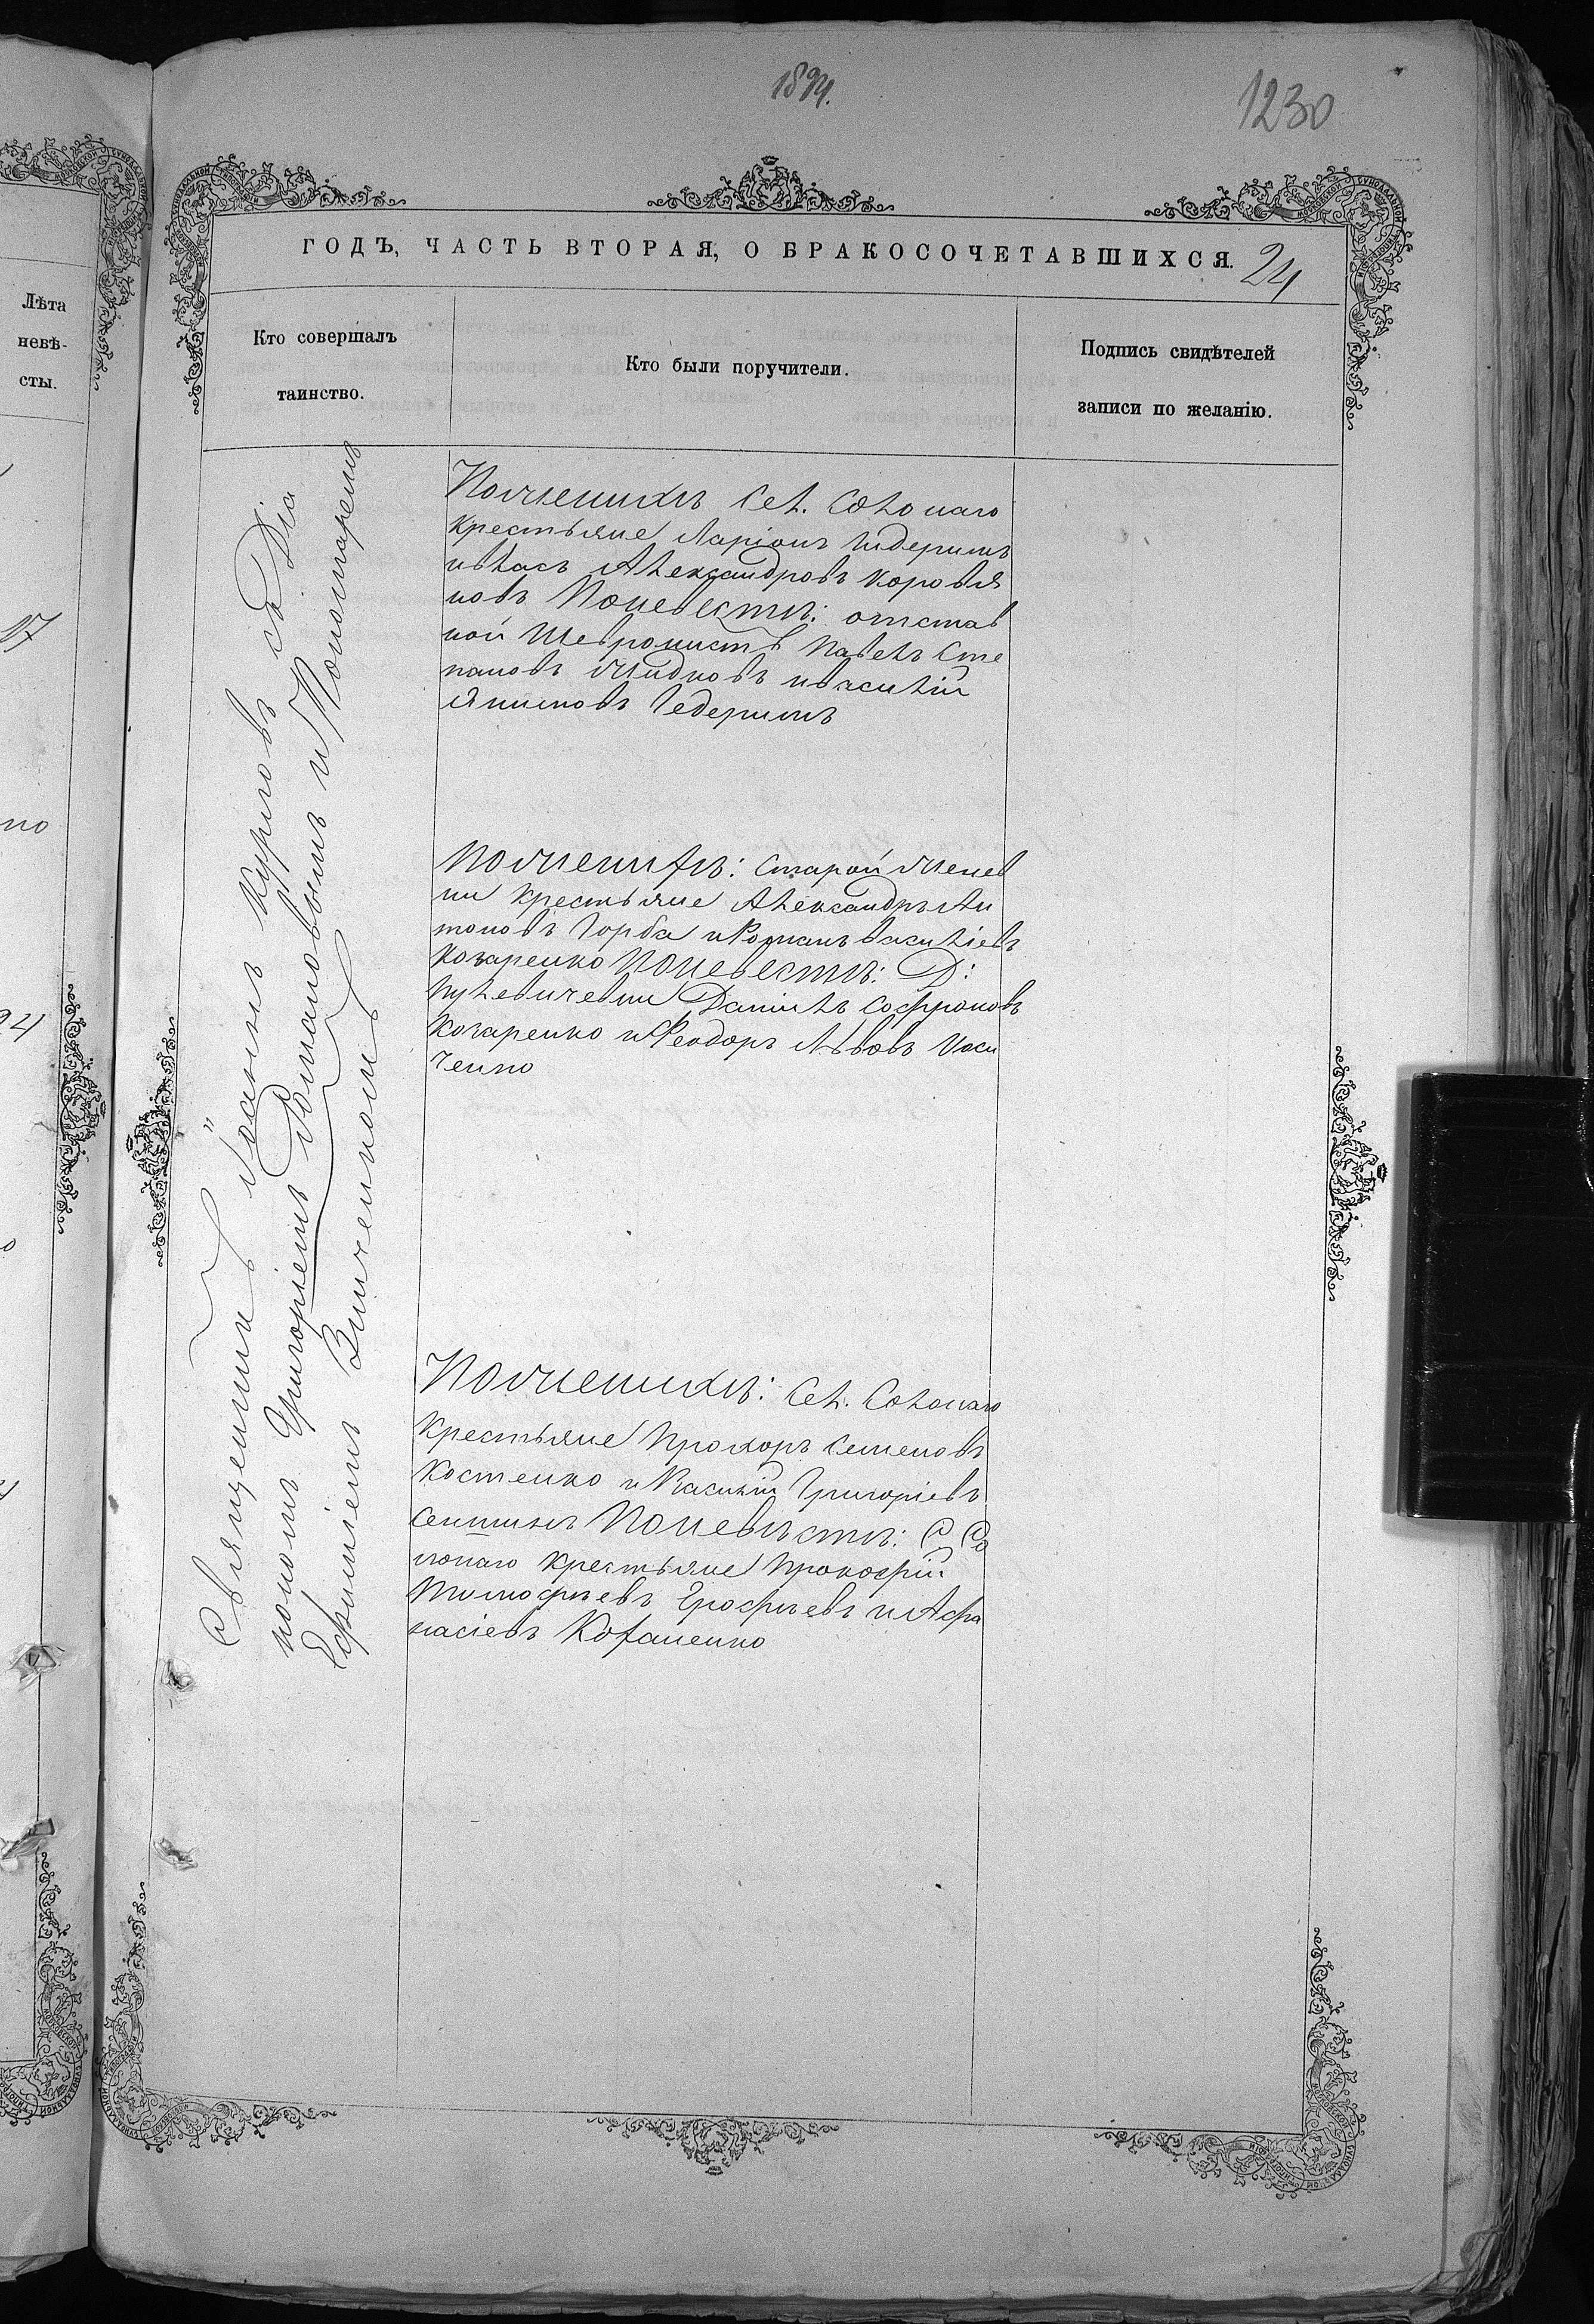 1894.
1230
ГОДЪ, ЧАСТЬ ВТОРАЯ, О БРАКОСОЧЕТАВШИХСЯ.
24
Лѣта
невѣ-
сты.
Кто совершалъ
таинство.
Кто были поручители.
Подпись свидѣтелей
записи по желанію.
17
но
Священникъ Іоаннъ Курговъ съ Діа
кономъ Григоріемъ Романовымъ и Пономаремъ
Ефиміемъ Винченкомъ
По женихѣ Сел. Солонаго
крестьяне Ларіонъ
Александровъ Коровя
ковъ По невѣстѣ: отстав
ной Шевронистъ Павелъ Сте
пановъ Жидковъ и Василій
Якимовъ Чедеримъ
По женихѣ: Старой
ни крестьяне Александръ Ан
тоновъ Горба и Романъ Василіевъ
Кочаренко По невѣстѣ: Д:
Даніилъ Софроновъ
Кочаренко и Феодоръ Львовъ Носи
ченко
По женихѣ: Сел. Солонаго
крестьяне Прохоръ Семеновъ
Костенко и Василій Григоріевъ
По невѣстѣ: С Со
лонаго крестьяне Прокофій
Тимофѣевъ Ерофѣевъ и Афа
насіевъ